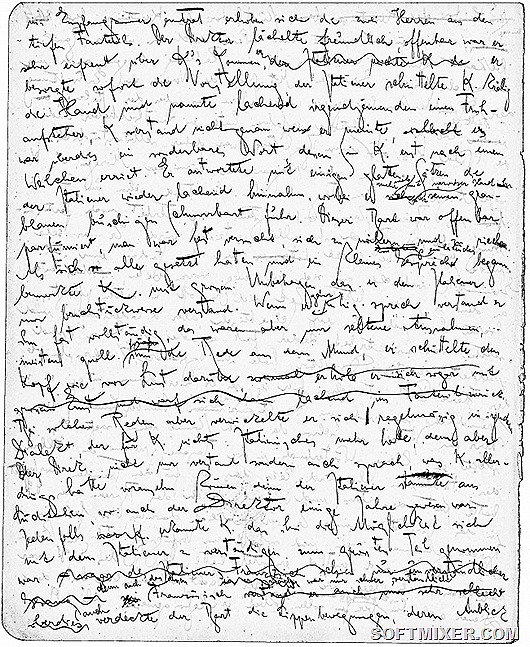 im Empfangszimmer eintrat erhoben sich die zwei Herren aus den
tiefen Fauteuils. Der Direktor lächelte freundlich, offenbar war er
sehr erfreut über K's Kommen, er
besorgte sofort die Vorstellung der Italiener schüttelte K. kräftig
die Hand und nannte lachend irgendjemanden einen Früh-
aufsteher, K verstand nicht genau wen er meinte, es
war überdies ein sonderbares Wort dessen Sinn K. erst nach einem
Weilchen erriet. Er antwortete mit einigen glatten Sätzen die
der Italiener wieder lachend hinnahm, wobei er mehrmals mit nervöser Hand über seinen grau-
blauen buschigen Schnurrbart fuhr. Dieser Bart war offenbar
parfümiert, man war fast versucht, sich zu nähern und zu riechen
Als sich alle gesetzt hatten und ein kleines einleitendes Gespräch begann
bemerkte K. mit grossem Unbehagen, dass er den Italiener
nur bruchstückweise verstand. Wenn er ganz ruhig sprach verstand er
ihn fast vollständig das waren aber nur seltene Ausnahmen,
meistens quoll ihm die Rede aus dem Mund, er schüttelte den
Kopf wie vor Lust darüber
Bei solchen Reden aber verwickelte er sich regelmässig in irgend
Dialekt der für K nichts Italienisches mehr hatte, den aber
der Direk. nicht nur verstand sondern auch sprach was K. aller-
dings hatte voraussehn können, denn der Italiener stammte aus
Süditalien, wo auch der Direktor einige Jahre gewesen war
Jedenfalls erkannte K dass ihm die Möglichkeit sich
mit dem Italiener zu verständigen zum grössten Teil genommen
war
denn auch dessen Französisch war nur schwer verständlich
auch verdeckte der Bart die Lippenbewegungen, deren Anblick
SOFTMIXER.COM